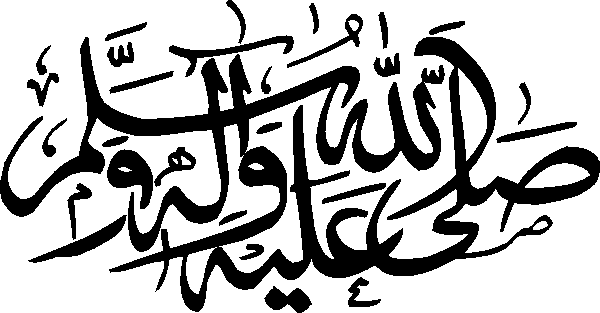 صَلَّى اللّٰهُ عَلَيْهِ وَآلِهِ وَسَلَّمَ